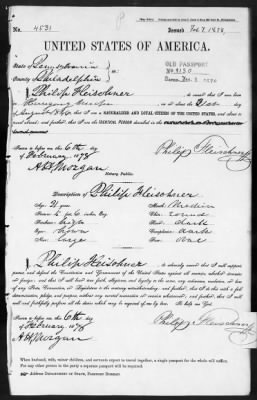 No. 4531
Feb 7, 1878,
UNITED STATES OF AMERICA.
State of Pennsylvania
County of Philadelphia
OLD PASSPORT
No.
I, Philip Fleischner
do
that I was born in
on or about the 21st day
of August
that I am a NATURALIZED AND LOYAL CITIZEN OF THE UNITED STATES, and about to travel
abroad; and further, that I am the IDENTICAL PERSON described in the
Sworn to before me this 6th
of February 1878
Philip Fleischner
A H Morgan
Notary Public.
Description of Philip Fleischner
Age:
Mouth: Medium
Stature:
Chin: round
Forehead: high
Hair: dark
Eyes: brown
Complexion: dark
Nose: large
Face: oval
I, Philip Fleischner, do solemnly swear that I will support,
protect, and defend the Constitution and Government of the United States against all enemies, whether domestic
or foreign; and that I will bear true faith, allegiance, and loyalty to the same, any ordinance, resolution, or law
of any State, Convention, or Legislature to the contrary notwithstanding; and further, that I do this with a full
determination, pledge, and purpose, without any mental reservation or evasion whatsoever; and further, that I will
well and faithfully perform all the duties which may be required of me by law. So help me God.
Sworn to before me this 6th day
of February 1878
Philip Fleischner
A H Morgan
When husband, wife, minor children, and servants expect to travel together, a single passport for the whole will suffice.
For any other person in the party a separate passport will be required.
Address DEPARTMENT OF STATE, PASSPORT BUREAU.